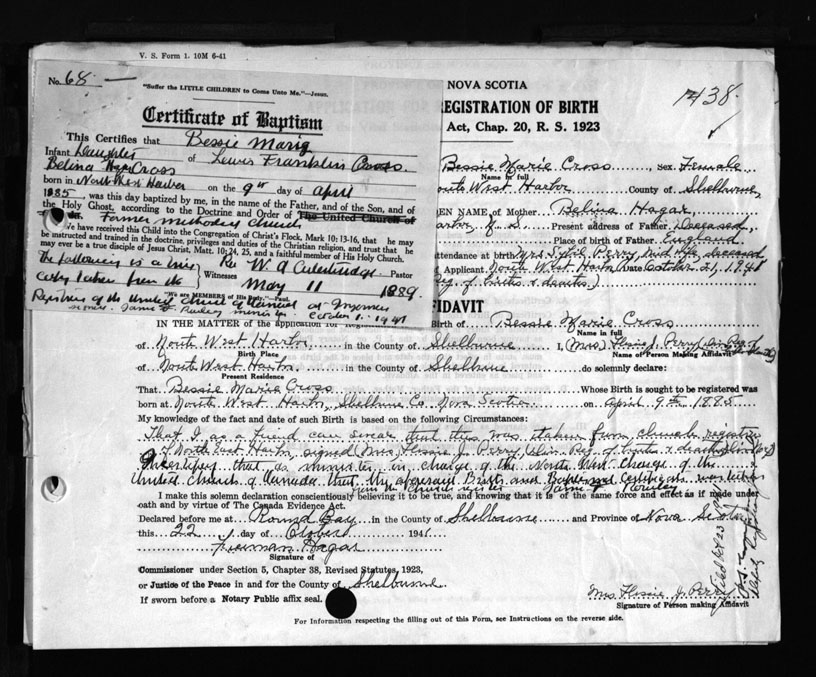 V. S. Form 1. 10M 6-41
No. 68
"Suffer the LITTLE CHILDREN to Come Unto Me."—Jesus.
Certificate of Baptism
This Certifies that Bessie Maria
Infant Daughter of Lewis Franklin Cross
Belina Cross
born in North West Harbor on the 9th day of April
1885, was this day baptized by me, in the name of the Father, and of the Son, and of
the Holy Ghost, according to the Doctrine and Order of The United Church of
Former methodist church
We have received this Child into the Congregation of Christ's Flock, Mark 10: 13-16, that he may
be instructed and trained in the doctrine, privileges and duties of the Christian religion, and trust that he
may ever be a true disciple of Jesus Christ, Matt. 10: 24, 25, and a faithful member of His Holy Church.
The following is a true Rev W. A Pastor
copy taken from the Witnesses May 11 1889.
"We are MEMBERS of His Body."—Paul.
Registers of the United Church of Canada at
signed. James minister. October 1. 1941
NOVA SCOTIA
REGISTRATION OF BIRTH
Act, Chap. 20, R. S. 1923
1438
Bessie Marie Cross, Sex Female
Name in full
South West Harbor County of Shelburne
EN NAME of Mother Belina Hagar
Present address of Father Deceased
Place of birth of Father England
attendance at birth Mrs Sybil Perry, mid wife, deceased
Applicant North West Harbor Date October 21, 1941
Reg. of births & deaths)
AFFIDAVIT
IN THE MATTER of the application for Registration of Birth of Bessie Marie Cross
Name in full
of North West Harbor, in the County of Shelburne I, (Mrs) Flossie J. Perry
Birth Place
Name of Person Making Affidavit
of North West Harbor in the County of Shelburne do solemnly declare:
Present Residence
That Bessie Marie Cross Whose Birth is sought to be registered was
born at North West Harbor, Shelburne Co. Nova Scotia on April 9th 1885
My knowledge of the fact and date of such Birth is based on the following Circumstances:
That I as a friend can swear that this was taken from church register
of North East Harbor, signed (Mrs) Flossie J. Perry (Div. Reg. of births & deaths)
I certify that as minister in charge of the North West Charge of the
United Church of Canada that the aforesaid Birth and Baptismal Certificate was taken
from Church register James
I make this solemn declaration conscientiously believing it to be true, and knowing that it is of the same force and effect as if made under
oath and by virtue of The Canada Evidence Act.
Declared before me at Round Bay in the County of Shelburne and Province of Nova Scotia
this 22 day of October 1941
Freeman Hagar
Signature of
Commissioner under Section 5, Chapter 38, Revised Statutes, 1923,
or Justice of the Peace in and for the County of Shelburne
If sworn before a Notary Public affix seal.
Mrs. Flossie J. Perry
Signature of Person making Affidavit
For Information respecting the filling out of this Form, see Instructions on the reverse side.